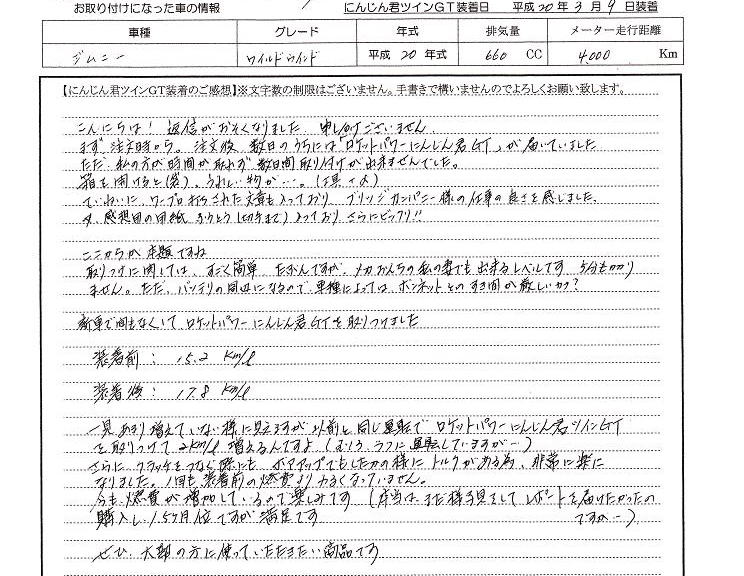 お取り付けになった車の情報
にんじん君ツインGT装着日 平成20年3月9日装着
車種 グレード 年式 排気量 メーター走行距離
ジムニー ワイルドウインド 平成20年式 660 CC 4000 Km
【にんじん君ツインGT装着のご感想】※文字数の制限はございません。手書きで構いませんのでよろしくお願い致します。
こんにちは! 返信がおそくなりました 申し訳ございません
まず、注文時から。注文後、数日のうちには「ロケットパワーにんじん君GT」が届いていました
ただ、私の方が時間が取れず 数日間取り付けが出来ませんでした。
箱を開けると(袋)、うれしい物が…。
ていねいに、ワープロ打ちされた文章も入っており ブリッジカンパニー様の仕事の良さを感じました。
又、感想用の用紙、ふうとう(切手まで)入っており さらにビックリ!!
ここからが本題ですね
取りつけに関しては、すごく簡単 たぶんですが、メカおんちの私の妻でも出来るレベルです 5分もかかり
ません。ただ、バッテリの周辺になるので、車種によっては ボンネットとのすき間が厳しいか?
新車で間もなくして ロケットパワーにんじん君GTを取りつけました
装着前: 15.2 Km/ℓ
装着後: 17.8 Km/ℓ
一見あまり増えていない様に見えますが 以前と同じ運転で ロケットパワーにんじん君ツインGT
を取りつけて 2Km/ℓ 増えるんですよ (むしろ、ラフに運転していますが…)
さらに クラッチをつなぐ際にも ボアアップでもしたかの様に トルクがある為、非常に楽に
なりました。1回も 装着前の燃費よりわるくなっていません。
今も、燃費が増加しているので楽しみです (本当は、まだ様子見をして レポートを届けたかったの
購入し、1.5ヶ月位ですが満足です ですが…)
ぜひ、大勢の方に使っていただきたい商品です